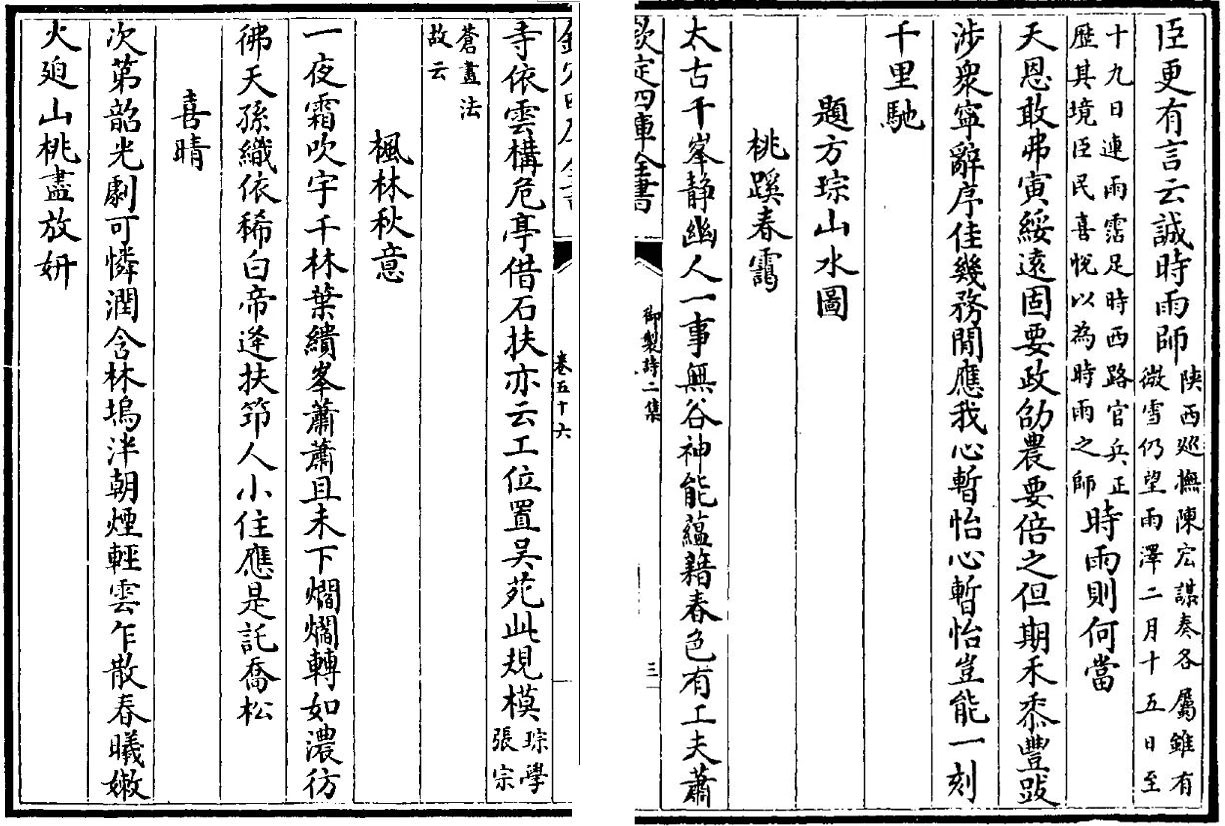 臣更有言云誠時雨師陝西廵撫陳宏謀奏各屬雖有
微雪仍望雨澤二月十五日至
十九日連雨霑足時西路官兵正
歴其境臣民喜悅以為時雨之師時雨則何當
天恩敢弗寅綏遠固要政劭農要倍之但期禾黍豐跋
涉衆寧辭序佳幾務閒應我心暫怡心暫怡豈能一刻
千里馳
題方琮山水圖
桃蹊春靄
太古千峯静幽人一事無谷神能蘊藉春色有工夫蕭
欽定四庫全書
御製詩二集
三
欽定四庫全書
卷五十六
寺依雲構危亭借石扶亦云工位置吳苑此規模琮學
張宗
蒼畫法
故云
楓林秋意
一夜霜吹宇千林葉繢峯蕭蕭且未下爓爓轉如濃彷
彿天孫織依稀白帝逢扶笻人小住應是託喬松
喜晴
次第韶光劇可憐潤含林塢泮朝煙輕雲乍散春曦嫩
火廹山桃盡放妍